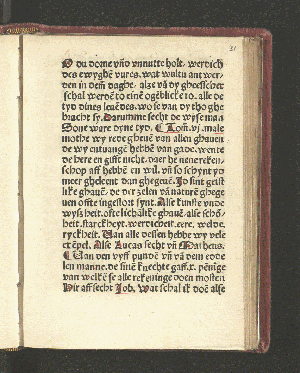 31
O du dome vñd vnnutte holt. werdich
des ewygbē vures. wat wultu ant wer-
den in dem dagbe. alze vā dy gheesschet
schal werdē to einē ogēblicke to. alle de
tyd dines leuēdes. wo se van dy tho ghe
bracht sy. Darumme secht de wyse man
Sone ware dyne tyd. ¶ Tom .vj. male
mothe wy rede gheuē van allen ghauen
de wy entuangē hebbē van gade. wente
de here en gifft nicht. daer he nene reken-
schop aff hebbē en wil. vñ so schynt yd
meer gheleent dan ghegeuē. Jo sint geist
like ghauē. de der zelen vā naturē ghege
uen offte ingestort synt. Alse kunste vnde
wyszheit. ofte lichālike ghauē. alse schō-
heit. starckheyt. werdicheit. ere. welde.
ryckheit. Van alle dessen hebbe wy vele
exēpel. Alse Lucas secht vñ Matheus.
¶ Van den vyff pundē vñ vā dem ede
len manne. de sinē knechte gaff .x. pēnige
van welkē se alle rekeninge doen mosten
Wir aff secht Job. Wat schal ik doē alse